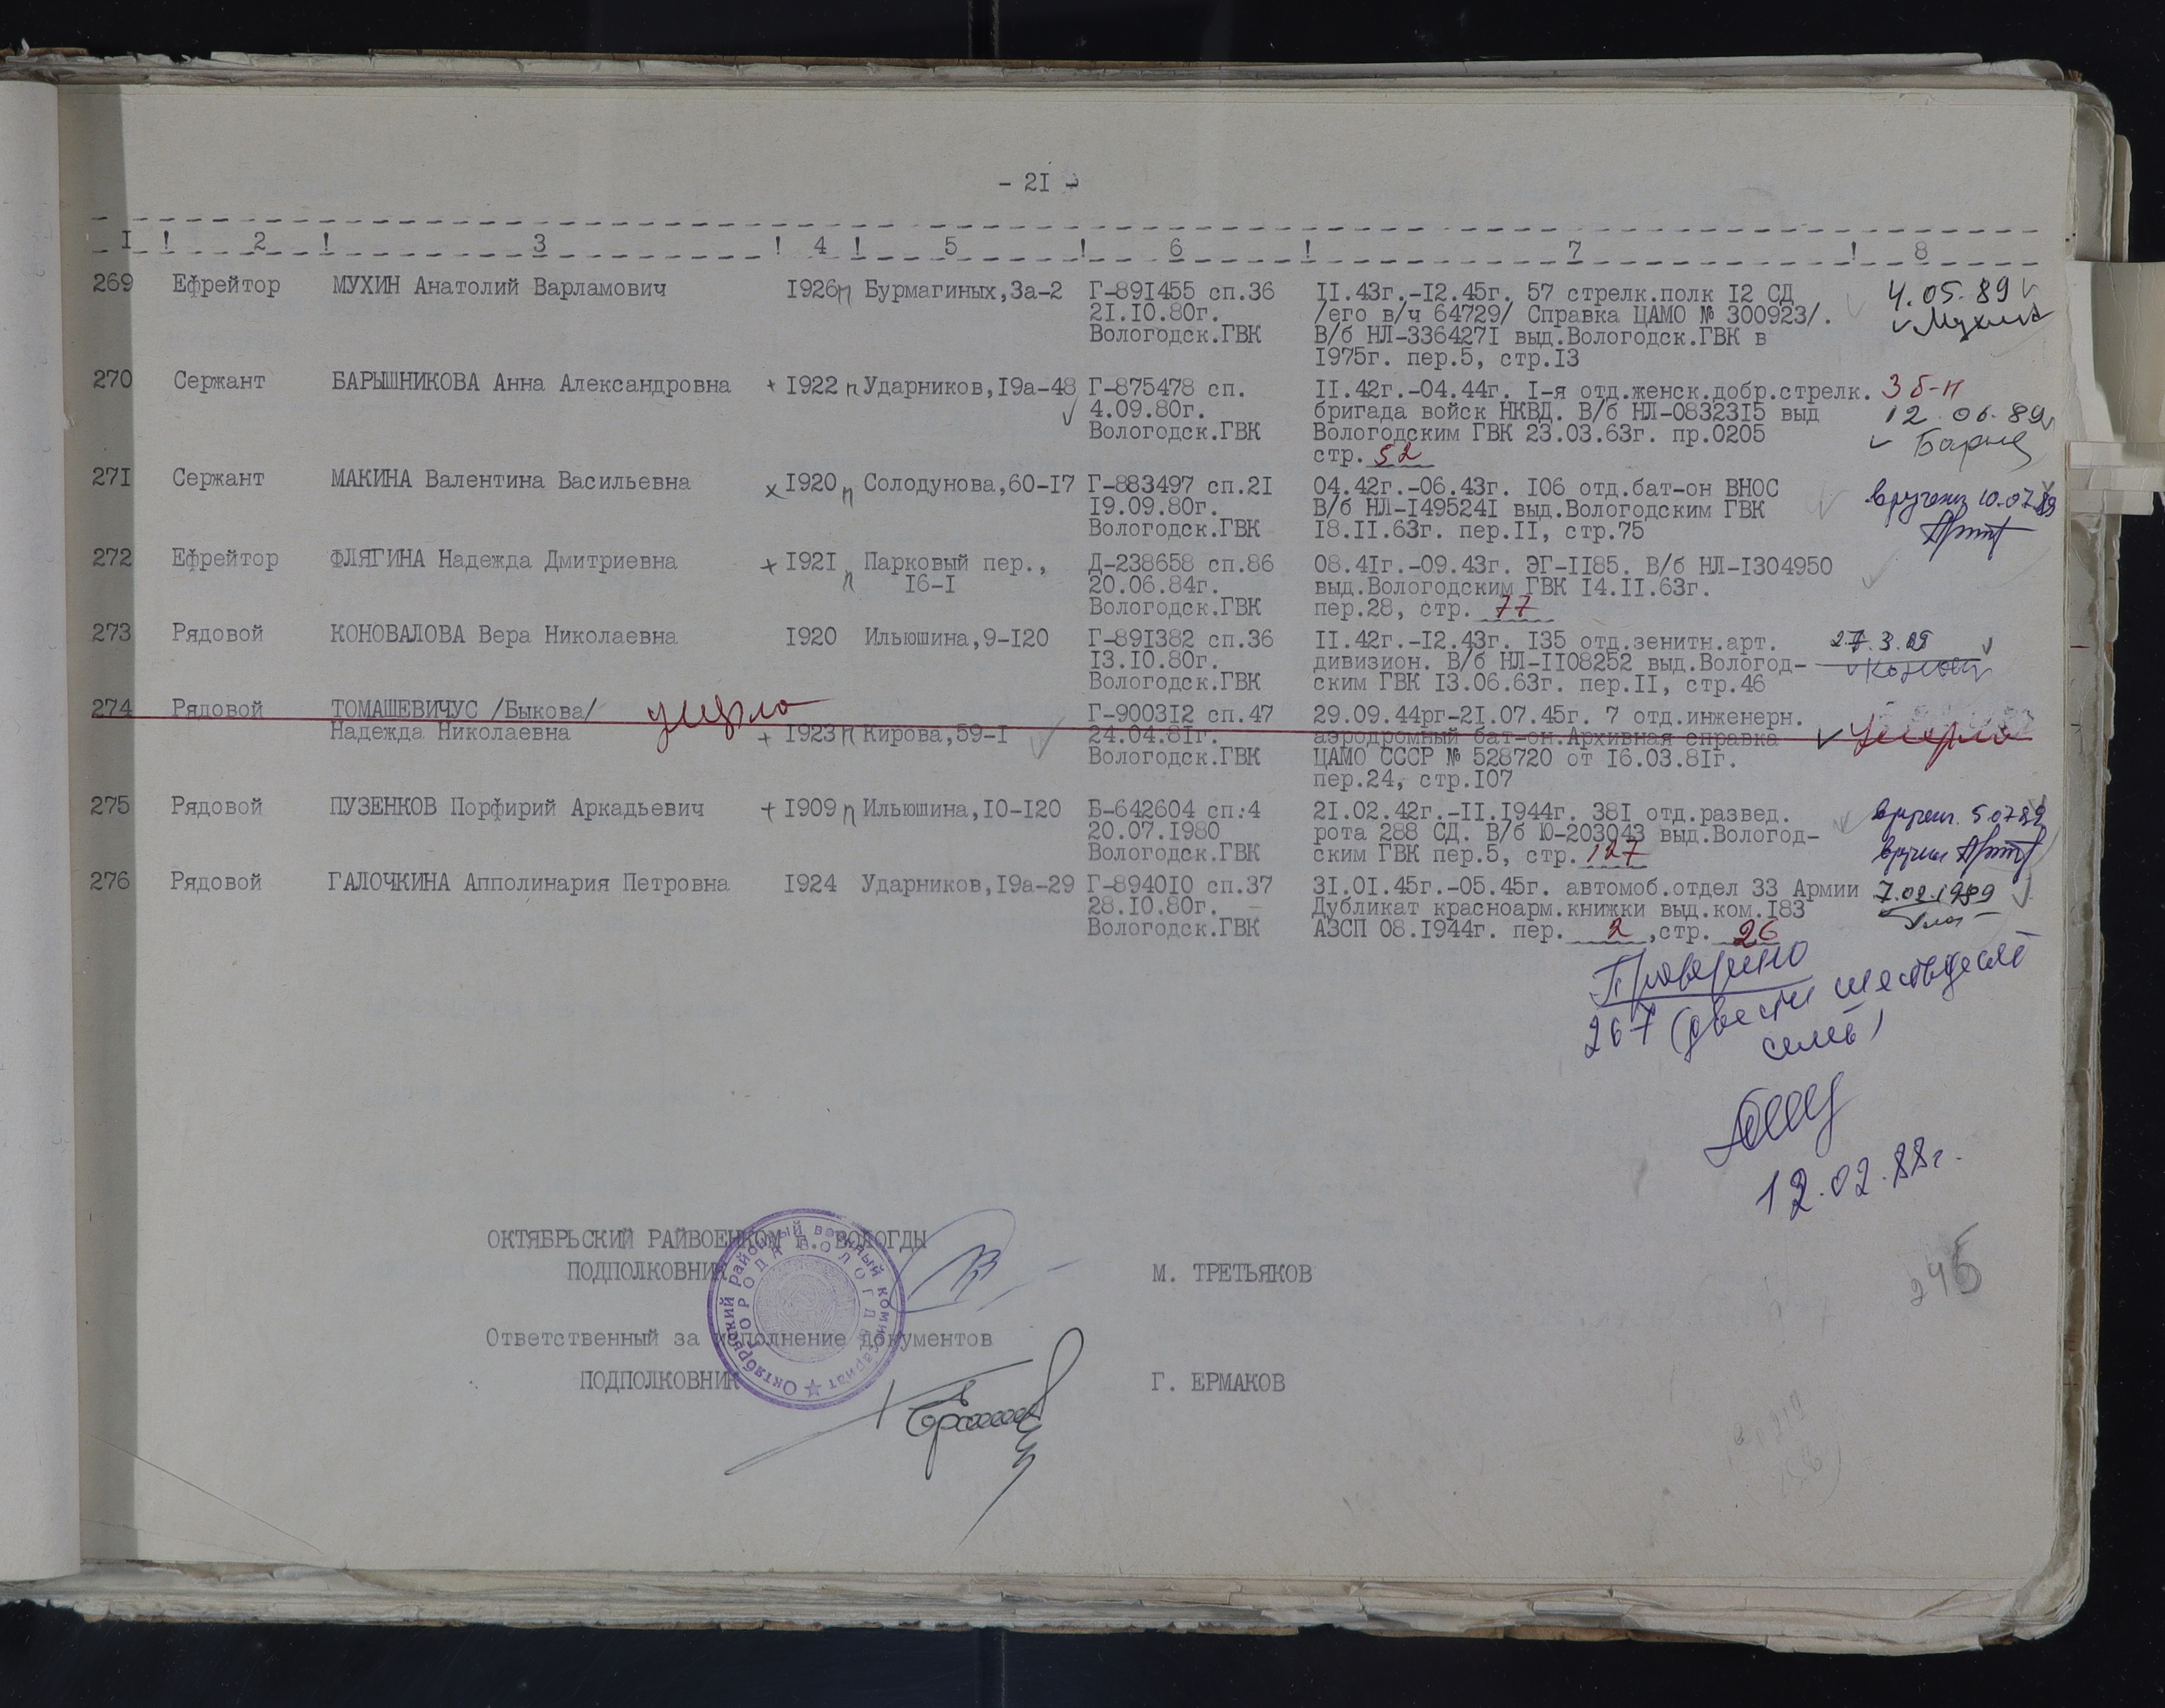 - 2I -
I ! 2 ! 3 ! 4 ! 5 ! 6 ! 7 ! 8
269 Ефрейтор МУХИН Анатолий Варламович I926п Бурмагиных,3а-2 Г-89I455 сп.36 II.43г.-I2.45г. 57 стрелк.полк I2 СД 4.05.89
2I.I0.80г. /его в/ч 64729/ Справка ЦАМО № 300923/.
Вологодск.ГВК В/б НЛ-336427I выд.Вологодск.ГВК в
I975г. пер.5, стр.I3
270 Сержант БАРЫШНИКОВА Анна Александровна + I922 п Ударников,I9а-48 Г-875478 сп. II.42г.-04.44г. I-я отд.женск.добр.стрелк. 3 б-н
4.09.80г. бригада войск НКВД. В/б НЛ-08323I5 выд 12.06.89
Вологодск.ГВК Вологодским ГВК 23.03.63г. пр.0205
стр. 52
27I Сержант МАКИНА Валентина Васильевна х I920 п Солодунова,60-I7 Г-883497 сп.2I 04.42г.-06.43г. I06 отд.бат-он ВНОС 10.07.89
I9.09.80г. В/б НЛ-I49524I выд.Вологодским ГВК
Вологодск.ГВК I8.II.63г. пер.II, стр.75
272 Ефрейтор ФЛЯГИНА Надежда Дмитриевна + I92I п Парковый пер., Д-238658 сп.86 08.4Iг.-09.43г. ЭГ-II85. В/б НЛ-I304950
I6-I 20.06.84г. выд.Вологодским ГВК I4.II.63г.
Вологодск.ГВК пер.28, стр. 77
273 Рядовой КОНОВАЛОВА Вера Николаевна I920 Ильюшина,9-I20 Г-89I382 сп.36 II.42г.-I2.43г. I35 отд.зенитн.арт. 27.3.89
I3.I0.80г. дивизион. В/б НЛ-II08252 выд.Вологод-
Вологодск.ГВК ским ГВК I3.06.63г. пер.II, стр.46
274 Рядовой ТОМАШЕВИЧУС /Быкова/ умерла Г-9003I2 сп.47 29.09.44рг-2I.07.45г. 7 отд.инженерн.
Надежда Николаевна + I923 п Кирова,59-I 24.04.8Iг. аэродромный бат-он.Архивная справка умерла
Вологодск.ГВК ЦАМО СССР № 528720 от I6.03.8Iг.
пер.24, стр.I07
275 Рядовой ПУЗЕНКОВ Порфирий Аркадьевич + I909 п Ильюшина,I0-I20 Б-642604 сп.4 2I.02.42г.-II.I944г. 38I отд.развед. 5.07.89
20.07.I980 рота 288 СД. В/б Ю-203043 выд.Вологод-
Вологодск.ГВК ским ГВК пер.5, стр. 127
276 Рядовой ГАЛОЧКИНА Апполинария Петровна I924 Ударников,I9а-29 Г-8940I0 сп.37 3I.0I.45г.-05.45г. автомоб.отдел 33 Армии
28.I0.80г. Дубликат красноарм.книжки выд.ком.I83
Вологодск.ГВК АЗСП 08.I944г. пер. 2 ,стр. 26
Проверено
267 (двести шестьдесят
семь)
12.02.88г.
ОКТЯБРЬСКИЙ РАЙВОЕНКОМ Г. ВОЛОГДЫ
ПОДПОЛКОВНИК М. ТРЕТЬЯКОВ
Октябрьский районный военный комиссариат
ГОРОДА ВОЛОГДЫ
Ответственный за исполнение документов
ПОДПОЛКОВНИК Г. ЕРМАКОВ